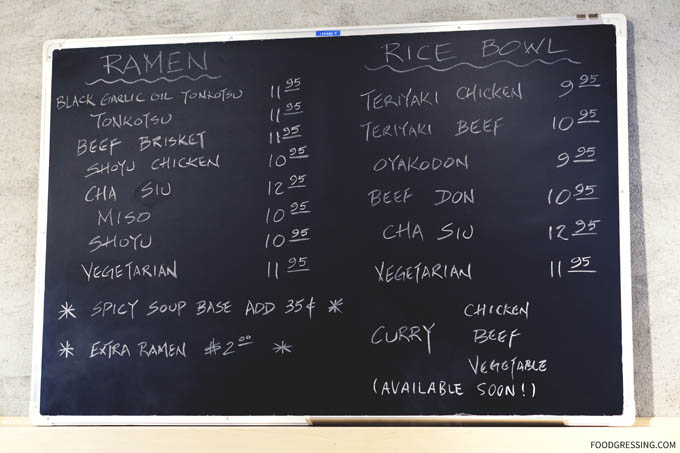 RAMEN
BLACK GARLIC OIL TONKOTSU 11 95
TONKOTSU 11 95
BEEF BRISKET 11 95
SHOYU CHICKEN 10 95
CHA SIU 12 95
MISO 10 95
SHOYU 10 95
VEGETARIAN 11 95
* SPICY SOUP BASE ADD 35¢ *
* EXTRA RAMEN $2 00 *
RICE BOWL
TERIYAKI CHICKEN 9 95
TERIYAKI BEEF 10 95
OYAKODON 9 95
BEEF DON 10 95
CHA SIU 12 95
VEGETARIAN 11 95
CHICKEN
CURRY BEEF
VEGETABLE
(AVAILABLE SOON!)
FOODGRESSING.COM